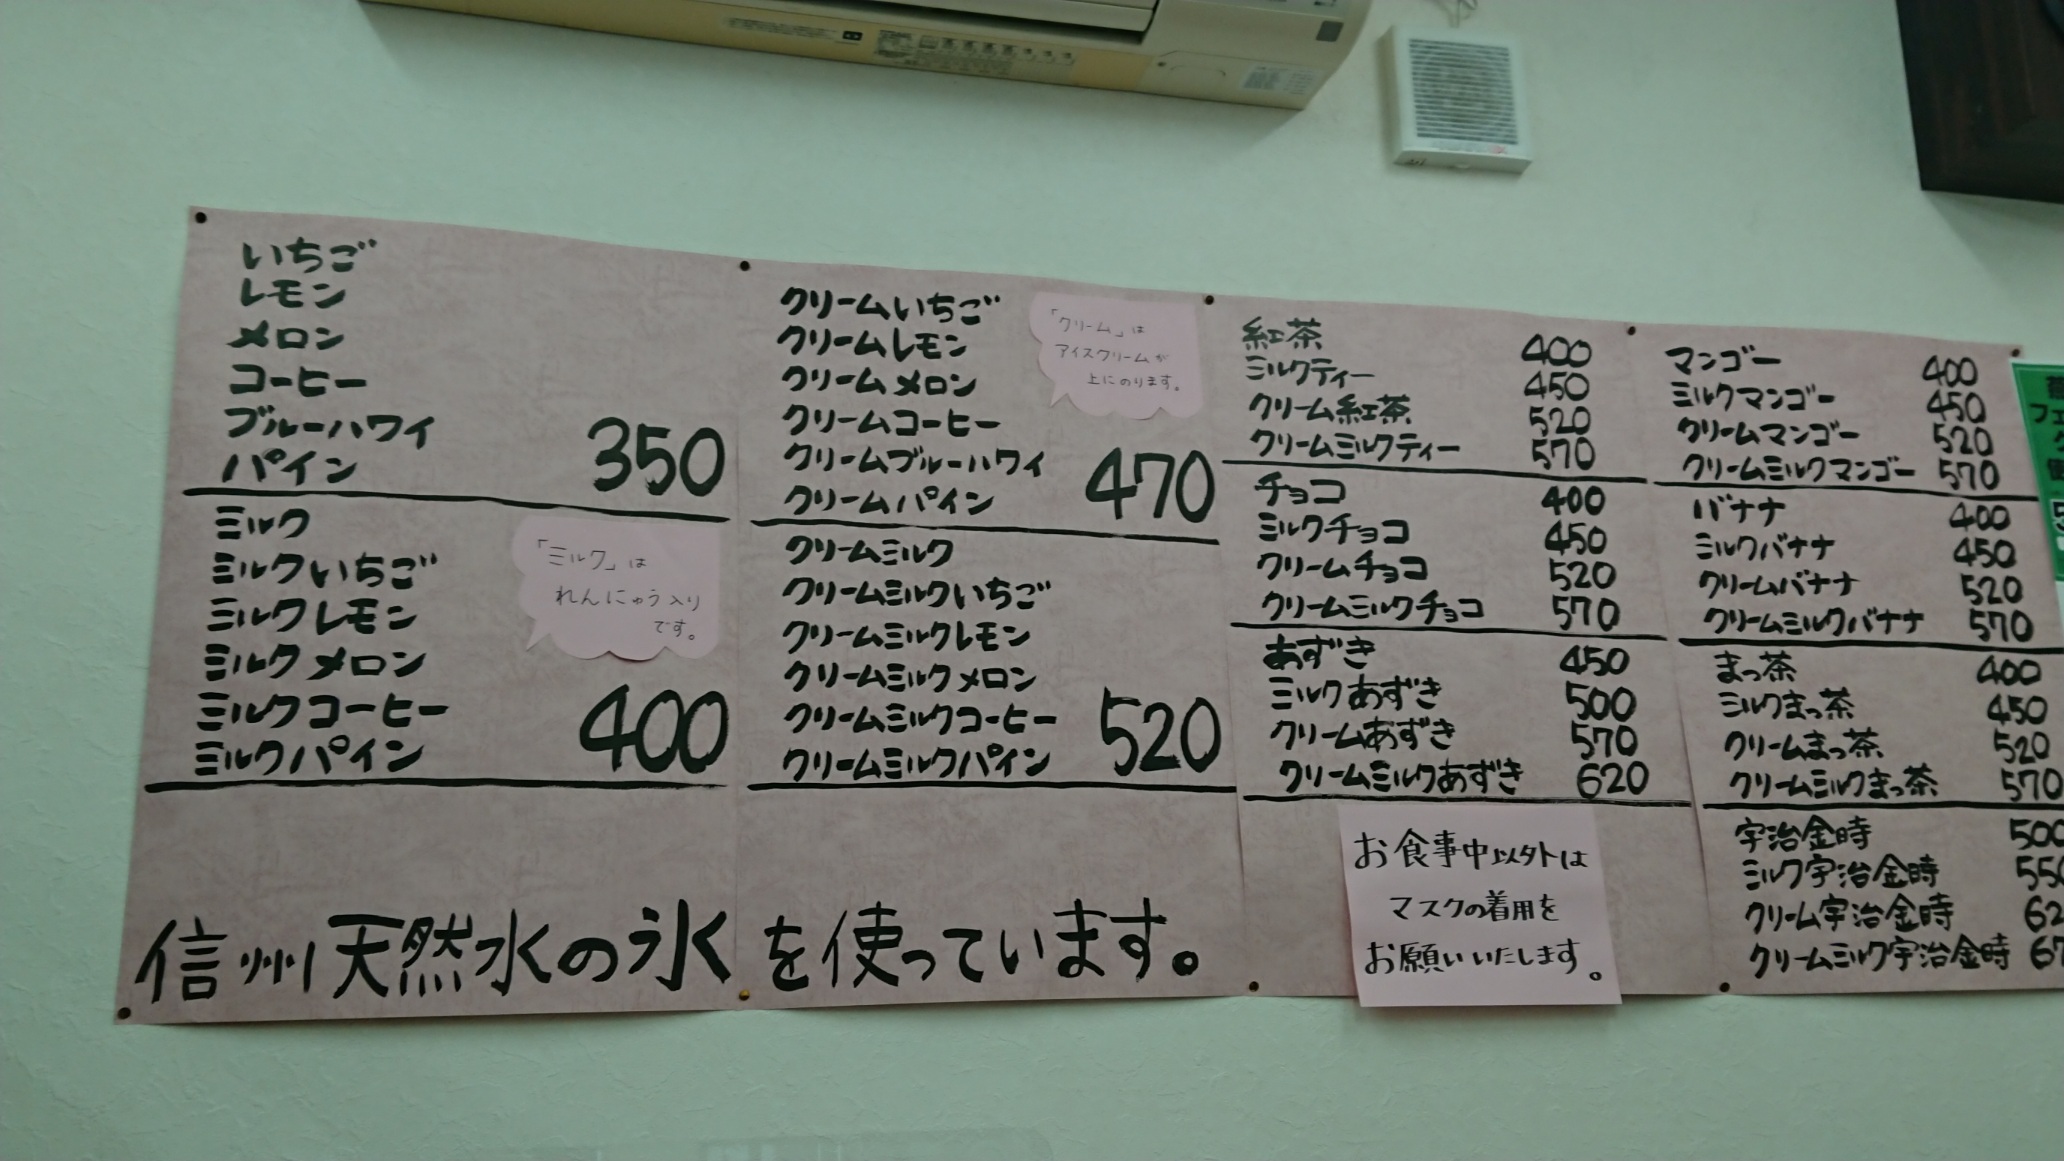 いちご
レモン
メロン
コーヒー
ブルーハワイ
パイン 350
ミルク
ミルクいちご
ミルクレモン
ミルクメロン
ミルクコーヒー
ミルクパイン 400
「ミルク」は
れんにゅう入り
です。
クリームいちご
クリームレモン
クリームメロン
クリームコーヒー
クリームブルーハワイ
クリームパイン 470
「クリーム」は
アイスクリームが
上にのります。
クリームミルク
クリームミルクいちご
クリームミルクレモン
クリームミルクメロン
クリームミルクコーヒー
クリームミルクパイン 520
信州天然水の氷を使っています。
紅茶 400
ミルクティー 450
クリーム紅茶 520
クリームミルクティー 570
チョコ 400
ミルクチョコ 450
クリームチョコ 520
クリームミルクチョコ 570
あずき 450
ミルクあずき 500
クリームあずき 570
クリームミルクあずき 620
お食事中以外は
マスクの着用を
お願いいたします。
マンゴー 400
ミルクマンゴー 450
クリームマンゴー 520
クリームミルクマンゴー 570
バナナ 400
ミルクバナナ 450
クリームバナナ 520
クリームミルクバナナ 570
まっ茶 400
ミルクまっ茶 450
クリームまっ茶 520
クリームミルクまっ茶 570
宇治金時 500
ミルク宇治金時 550
クリーム宇治金時 62
クリームミルク宇治金時 67